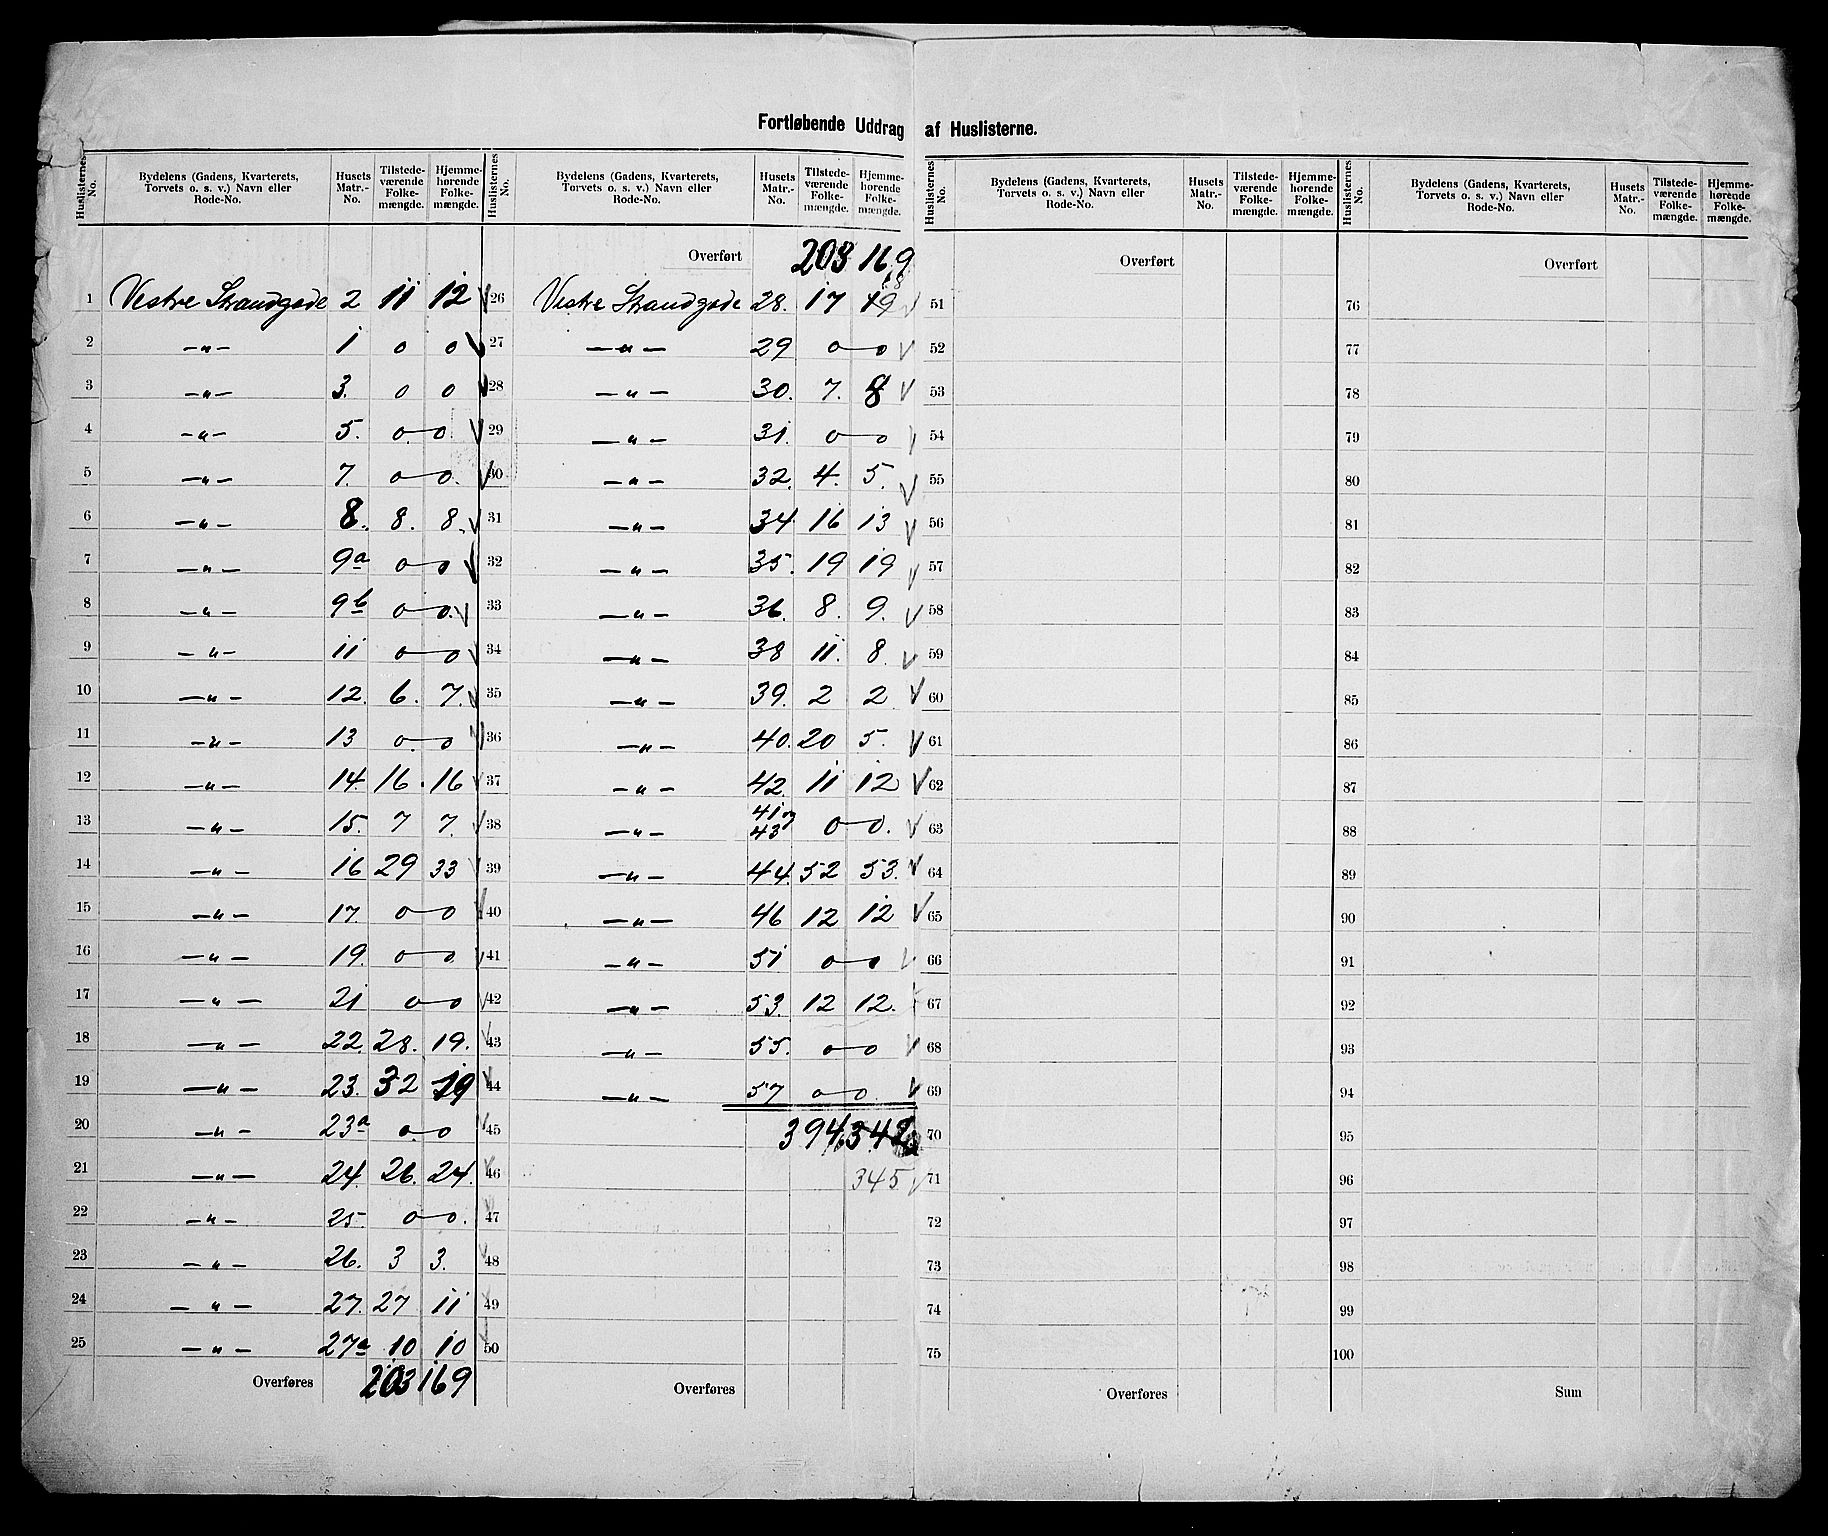 Fortløbende Uddrag af Huslisterne.
Huslisternes No. | Bydelens (Gadens, Kvarterets, Torvets o. s. v.) Navn eller Rode-No. | Husets Matr.-No. | Tilstede-værende Folke-mængde. | Hjemme-hørende Folke-mængde.
1 Vestre Strandgade 2 11 12
2 —„— 1 0 0
3 —„— 3. 0 0
4 —„— 5. 0 0
5 —„— 7. 0 0
6 —„— 8. 8. 8.
7 —„— 9a 0 0
8 —„— 9b 0 0
9 —„— 11 0 0
10 —„— 12. 6. 7.
11 —„— 13 0 0
12 —„— 14. 16. 16
13 —„— 15. 7 7.
14 —„— 16 29 33
15 —„— 17. 0 0
16 —„— 19. 0 0
17 —„— 21 0 0
18 —„— 22. 28. 19.
19 —„— 23. 32 19
20 —„— 23a 0 0
21 —„— 24. 26. 24.
22 —„— 25 0 0.
23 —„— 26. 3 3.
24 —„— 27. 27 11
25 —„— 27a 10 10
Overføres 203 169
Huslisternes No. | Bydelens (Gadens, Kvarterets, Torvets o. s. v.) Navn eller Rode-No. | Husets Matr.-No. | Tilstede-værende Folke-mængde. | Hjemme-hørende Folke-mængde.
Overført 203 169
26 Vestre Strandgade 28. 17 19 18
27 —„— 29 0 0
28 —„— 30. 7. 8
29 —„— 31. 0 0
30 —„— 32. 4. 5.
31 —„— 34 16 13
32 —„— 35. 19 19
33 —„— 36. 8. 9.
34 —„— 38 11. 8.
35 —„— 39. 2 2
36 —„— 40. 20 5.
37 —„— 42. 11 12
38 —„— 41 43 0 0.
39 —„— 44. 52 53.
40 —„— 46 12 12
41 —„— 51 0 0
42 —„— 53. 12 12.
43 —„— 55. 0 0
44 —„— 57 0 0
45 394.
46 345
47
48
49
50
Overføres
Huslisternes No. | Bydelens (Gadens, Kvarterets, Torvets o. s. v.) Navn eller Rode-No. | Husets Matr.-No. | Tilstede-værende Folke-mængde. | Hjemme-hørende Folke-mængde.
Overført
51
52
53
54
55
56
57
58
59
60
61
62
63
64
65
66
67
68
69
70
71
72
73
74
75
Overføres
Huslisternes No. | Bydelens (Gadens, Kvarterets, Torvets o. s. v.) Navn eller Rode-No. | Husets Matr.-No. | Tilstede-værende Folke-mængde. | Hjemme-hørende Folke-mængde.
Overført
76
77
78
79
80
81
82
83
84
85
86
87
88
89
90
91
92
93
94
95
96
97
98
99
100
Sum